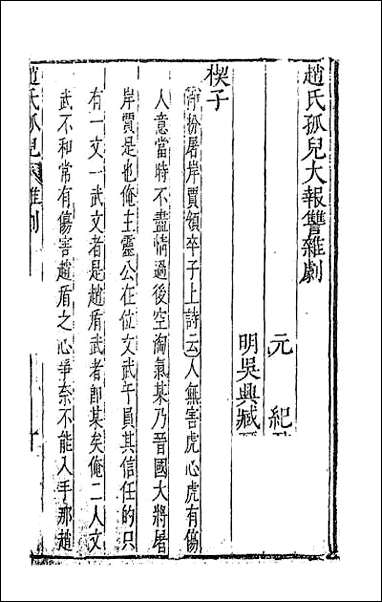 趙氏孤兒大報讐雜劇
元 紀
明吳興臧
楔子
淨扮屠岸賈領卒子上詩云人無害虎心虎有傷
人意當時不盡情過後空淘氣某乃晉國大將屠
岸賈是也俺主靈公在位文武千員其信任的只
有一文一武文者是趙盾武者即某矣俺二人文
武不和常有傷害趙盾之心爭柰不能入手那趙
趙氏孤兒 雜劇